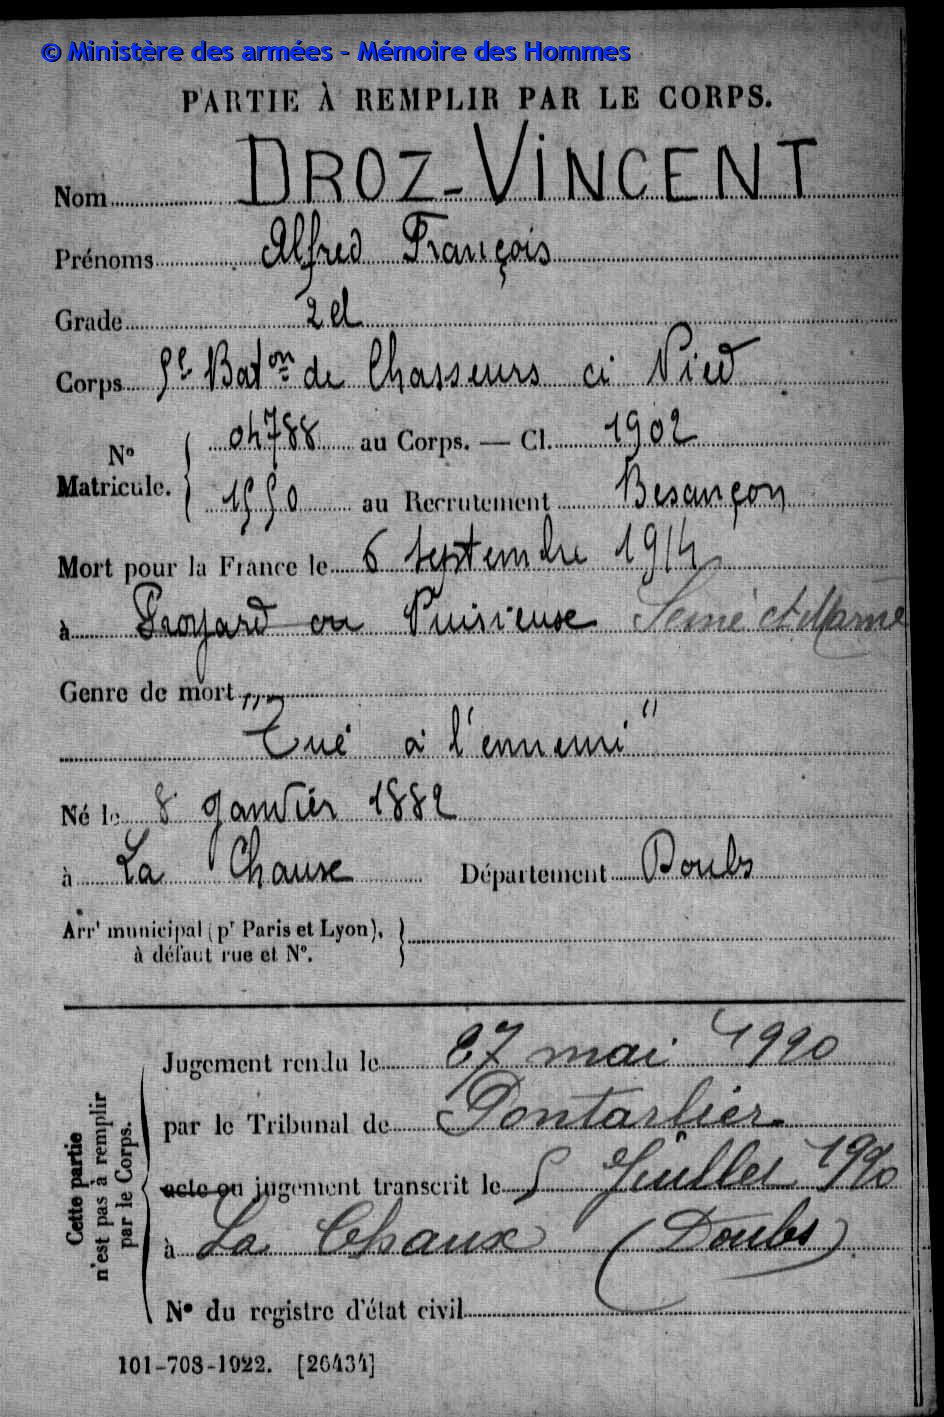 © Ministère des armées - Mémoire des Hommes
PARTIE À REMPLIR PAR LE CORPS.
Nom DROZ-VINCENT
Prénoms Alfred François
Grade 2 cl
Corps 5e Baton de Chasseurs à Pied
N° Matricule. { 04788 au Corps. — Cl. 1902
1550 au Recrutement Besançon
Mort pour la France le 6 septembre 1914
à Froyard ou Puisieuse Seine et Marne
Genre de mort
"Tué à l'ennemi"
Né le 8 Janvier 1882
à La Chaux Département Doubs
Arrt municipal (pr Paris et Lyon), }
à défaut rue et N°.
Cette partie n'est pas à remplir par le Corps.
Jugement rendu le 27 mai 1920
par le Tribunal de Pontarlier
acte ou jugement transcrit le 5 Juillet 1920
à La Chaux (Doubs)
N° du registre d'état civil
101-708-1922. [26434]